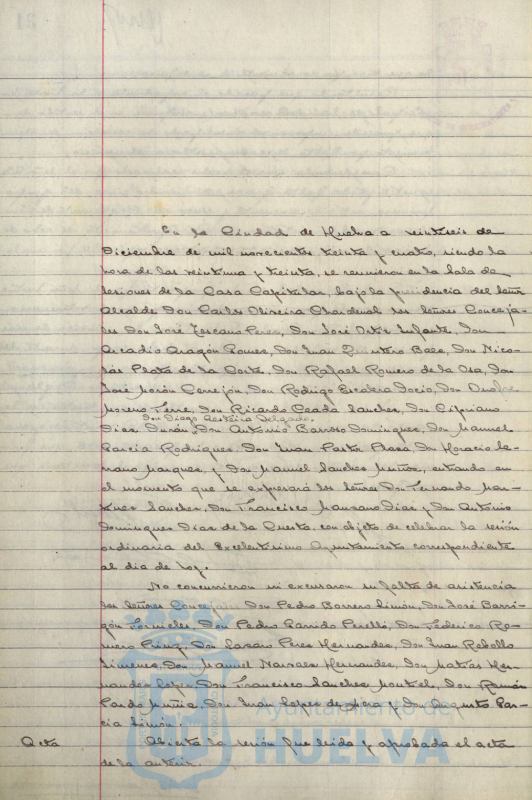 En la Ciudad de Huelva a veintiseis de
Diciembre de mil novecientos treinta y cuatro, siendo la
hora de las veintiuna y treinta, se reunieron en la Sala de
sesiones de la Casa Capitular, bajo la presidencia del Señor
Alcalde Don Carlos Oliveira Chardenal los Señores Conceja-
les Don José Lescano Perez, Don José Ortiz Infante, Don
Arcadio Aragón Gomez, Don Juan Quintero Baez, Don Nico-
lás Plata de la Corte, Don Rafael Romero de la Osa, Don
José Morón Cerrejón, Don Rodrigo Escalera Docio, Don
Moreno Terre, Don Ricardo Ceada Sanchez, Don Cipriano
Don Diego Gesteira Delgado,
Diaz Durán, Don Antonio Barroso Dominguez, Don Manuel
Garcia Rodriguez, Don Juan Pastor Plaza, Don Horacio Se-
rrano Marquez, y Don Manuel Sanchez Muñoz, entrando en
el momento que se expresará los Señores Don Fernando Mar-
tinez Sanchez, Don Francisco Manzano Diaz y Don Antonio
Dominguez Diaz de la Cuesta, con objeto de celebrar la sesión
ordinaria del Excelentísimo Ayuntamiento correspondiente
al dia de hoy.
No concurrieron ni excusaron su falta de asistencia
los Señores Concejales Don Pedro Borrero Limón, Don José Barri-
gón Fornieles, Don Pedro Garrido Perelló, Don Federico Ro-
mero Prinz, Don Lazaro Perez Hernandez, Don Juan Rebollo
Jimenez, Don Manuel Narvaez Hernandez, Don Matías Her-
nandez Lopez, Don Francisco Sanchez Montiel, Don Ramón
Pardo Muñiz, Don Juan Lopez de Mora y Don Augusto Gar-
cia Limón.
Acta Abierta la sesión fue leida y aprobada el acta
de la anterior.
Ayuntamiento de
HUELVA